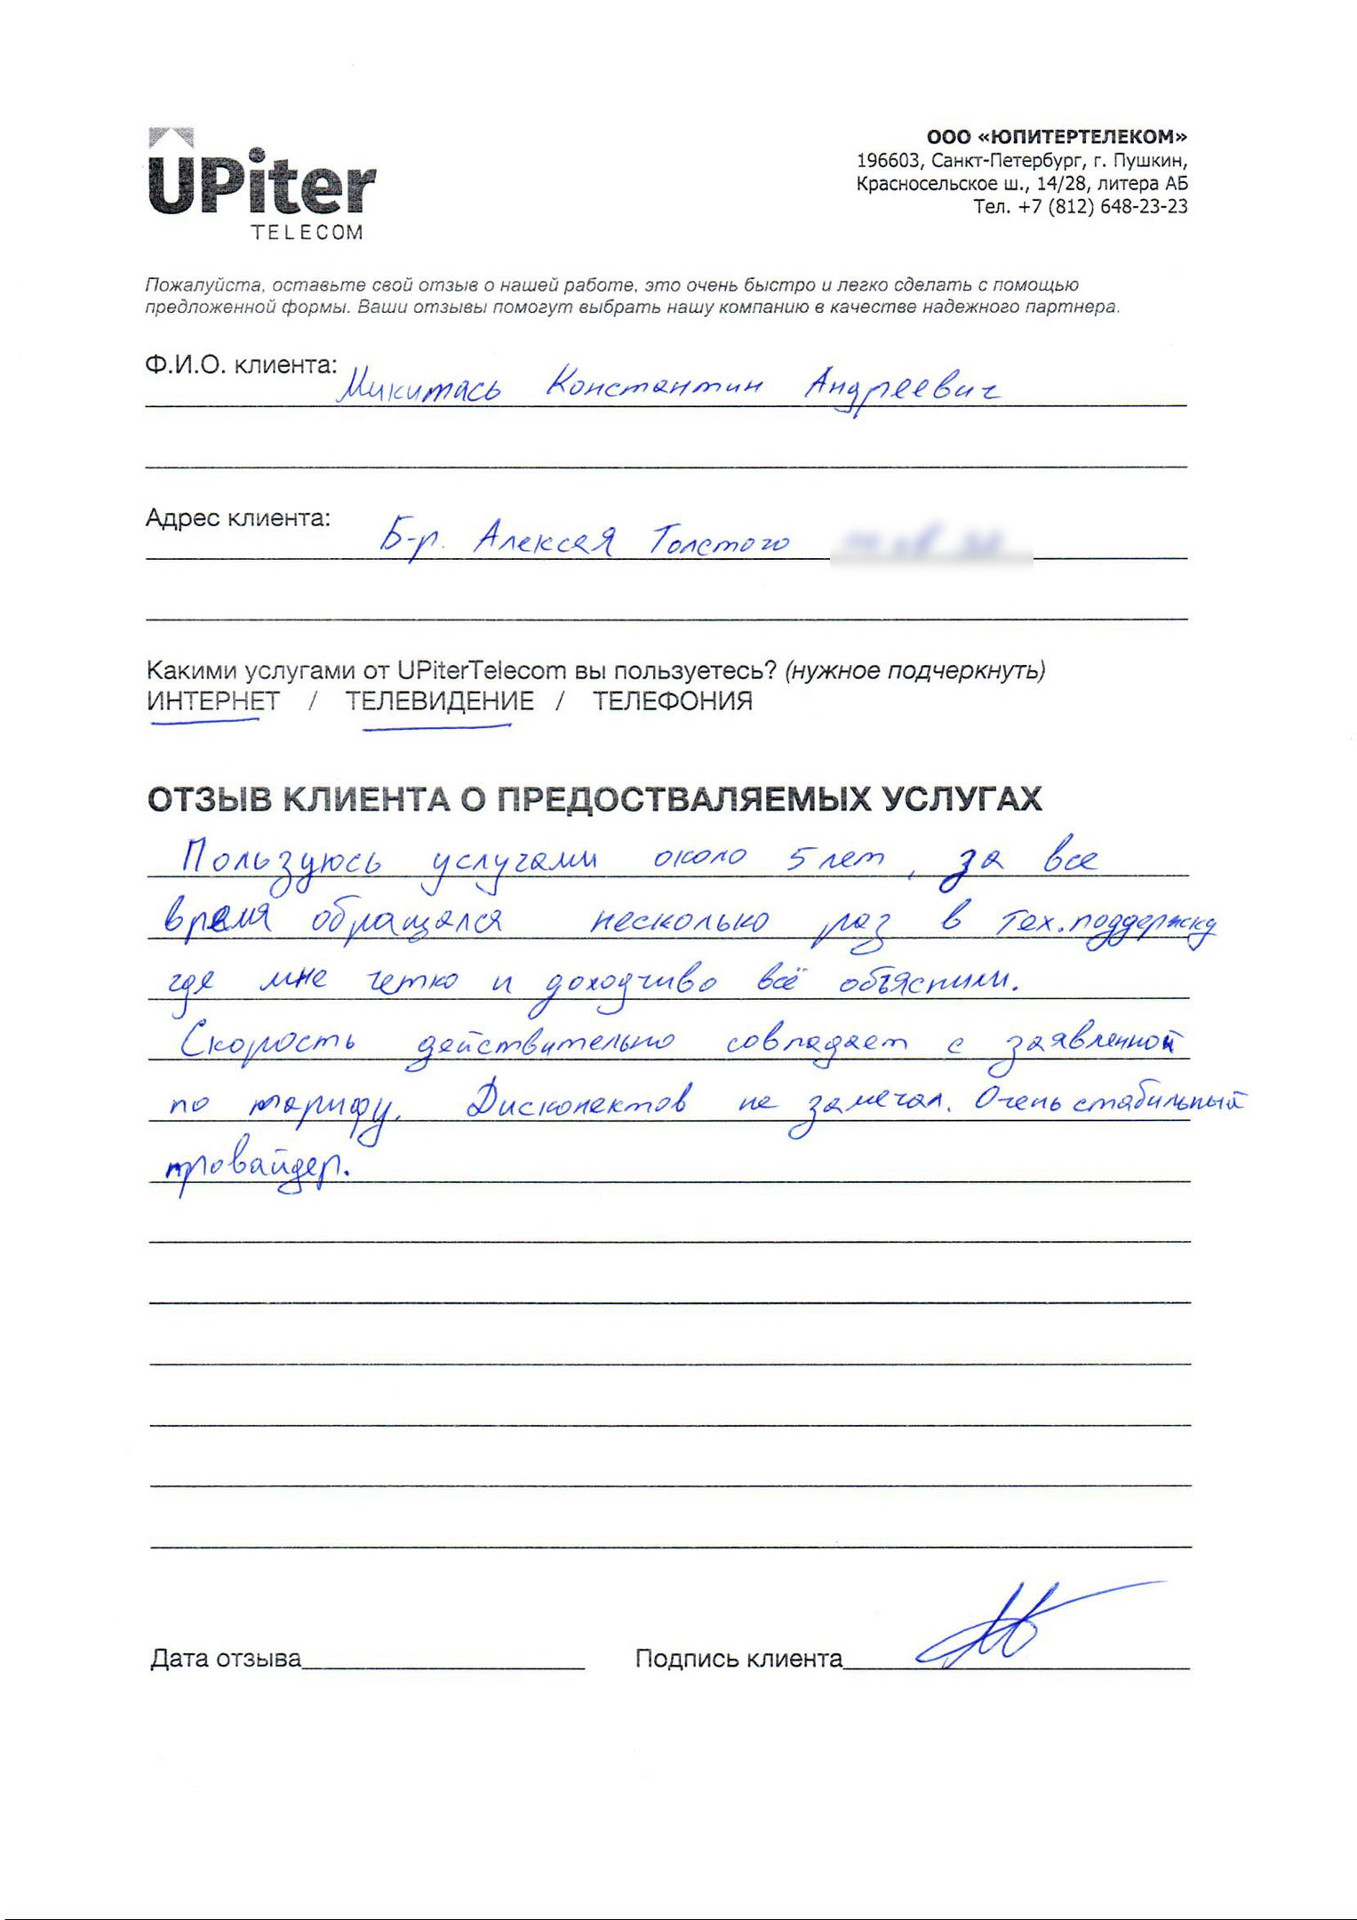 UPiter
TELECOM
ООО «ЮПИТЕРТЕЛЕКОМ»
196603, Санкт-Петербург, г. Пушкин,
Красносельское ш., 14/28, литера АБ
Тел. +7 (812) 648-23-23
Пожалуйста, оставьте свой отзыв о нашей работе, это очень быстро и легко сделать с помощью
предложенной формы. Ваши отзывы помогут выбрать нашу компанию в качестве надежного партнера.
Ф.И.О. клиента: Микитась Константин Андреевич
Адрес клиента: Б-р. Алексея Толстого
Какими услугами от UPiterTelecom вы пользуетесь? (нужное подчеркнуть)
ИНТЕРНЕТ / ТЕЛЕВИДЕНИЕ / ТЕЛЕФОНИЯ
ОТЗЫВ КЛИЕНТА О ПРЕДОСТВАЛЯЕМЫХ УСЛУГАХ
Пользуюсь услугами около 5 лет, за все
время обращался несколько раз в тех.поддержку
где мне четко и доходчиво всё объяснили.
Скорость действительно совпадает с заявленной
по тарифу. Дисконектов не замечал. Очень стабильный
провайдер.
Дата отзыва Подпись клиента